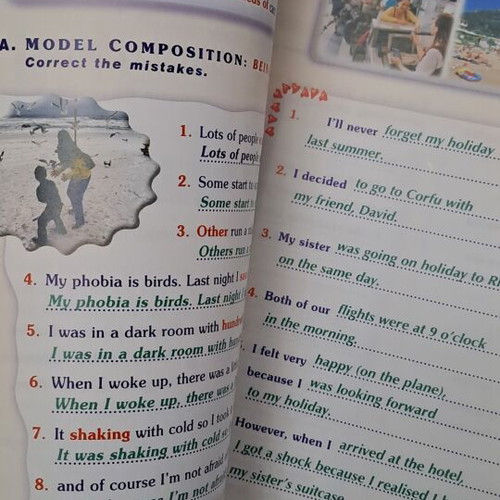 A. MODEL COMPOSITION:
Correct the mistakes.
1. Lots of people
Lots of people
2. Some start to
Some start to
3. Other run a
Others run a
4. My phobia is birds. Last night I
My phobia is birds. Last night I
5. I was in a dark room with
I was in a dark room with
6. When I woke up, there was a
When I woke up, there was a
7. It shaking with cold so I took
It was shaking with cold so
8. and of course I'm not afraid
and of course I'm not
1. I'll never forget my holiday
last summer.
2. I decided to go to Corfu with
my friend, David.
3. My sister was going on holiday to
on the same day.
4. Both of our flights were at 9 o'clock
in the morning.
I felt very happy (on the plane),
because I was looking forward
to my holiday.
However, when I arrived at the hotel,
I got a shock because I realised I
my sister's suitcase